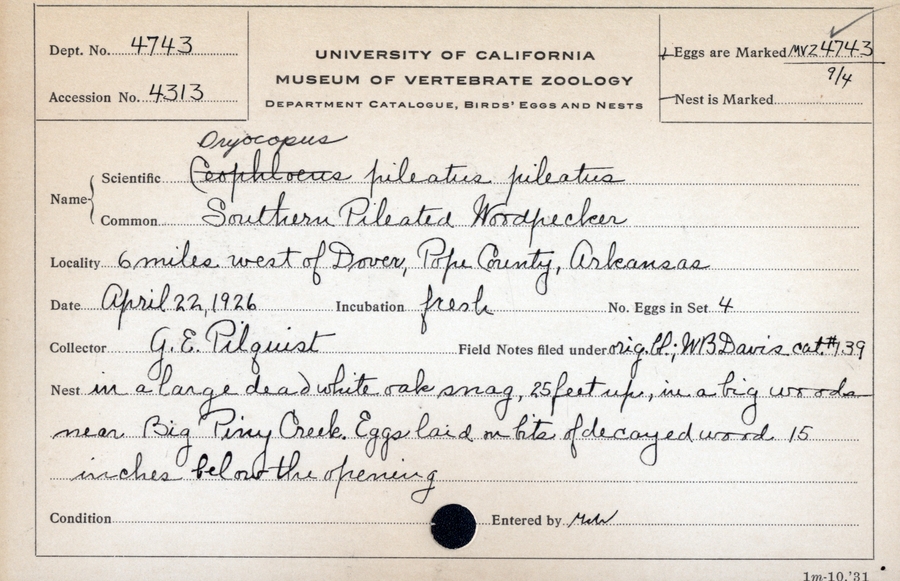 Dept. No. 4743
Accession No. 4313
UNIVERSITY OF CALIFORNIA
MUSEUM OF VERTEBRATE ZOOLOGY
DEPARTMENT CATALOGUE, BIRDS' EGGS AND NESTS
Eggs are Marked MVZ 4743
9/4
Nest is Marked
Dryocopus
Name Scientific Ceophloeus pileatus pileatus
Common Southern Pileated Woodpecker
Locality 6 miles west of Dover, Pope County, Arkansas
Date April 22, 1926 Incubation fresh No. Eggs in Set 4
Collector G. E. Pilquist Field Notes filed under orig. bl.; WB Davis cat. # 139
Nest in a large dead white oak snag, 25 feet up, in a big woods
near Big Piny Creek. Eggs laid on bits of decayed wood 15
inches below the opening
Condition Entered by
1m-10,'31